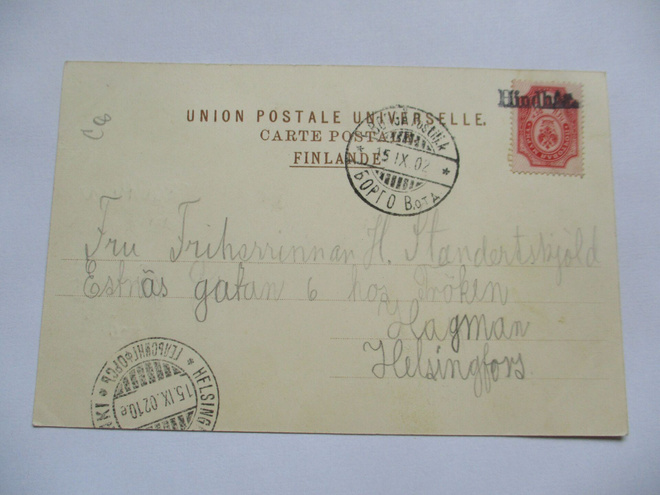 Hindhår.
UNION POSTALE UNIVERSELLE.
CARTE POSTALE
FINLANDE
15 IX.02
БОРГО В.ОТД
Fru Friherrinnan H. Standertskjöld
Estnäs gatan 6 hos Fröken
Hagman
Helsingfors
HELSING KI
ГЕЛЬСИНГФОРСЪ
15.IX.02 10 e